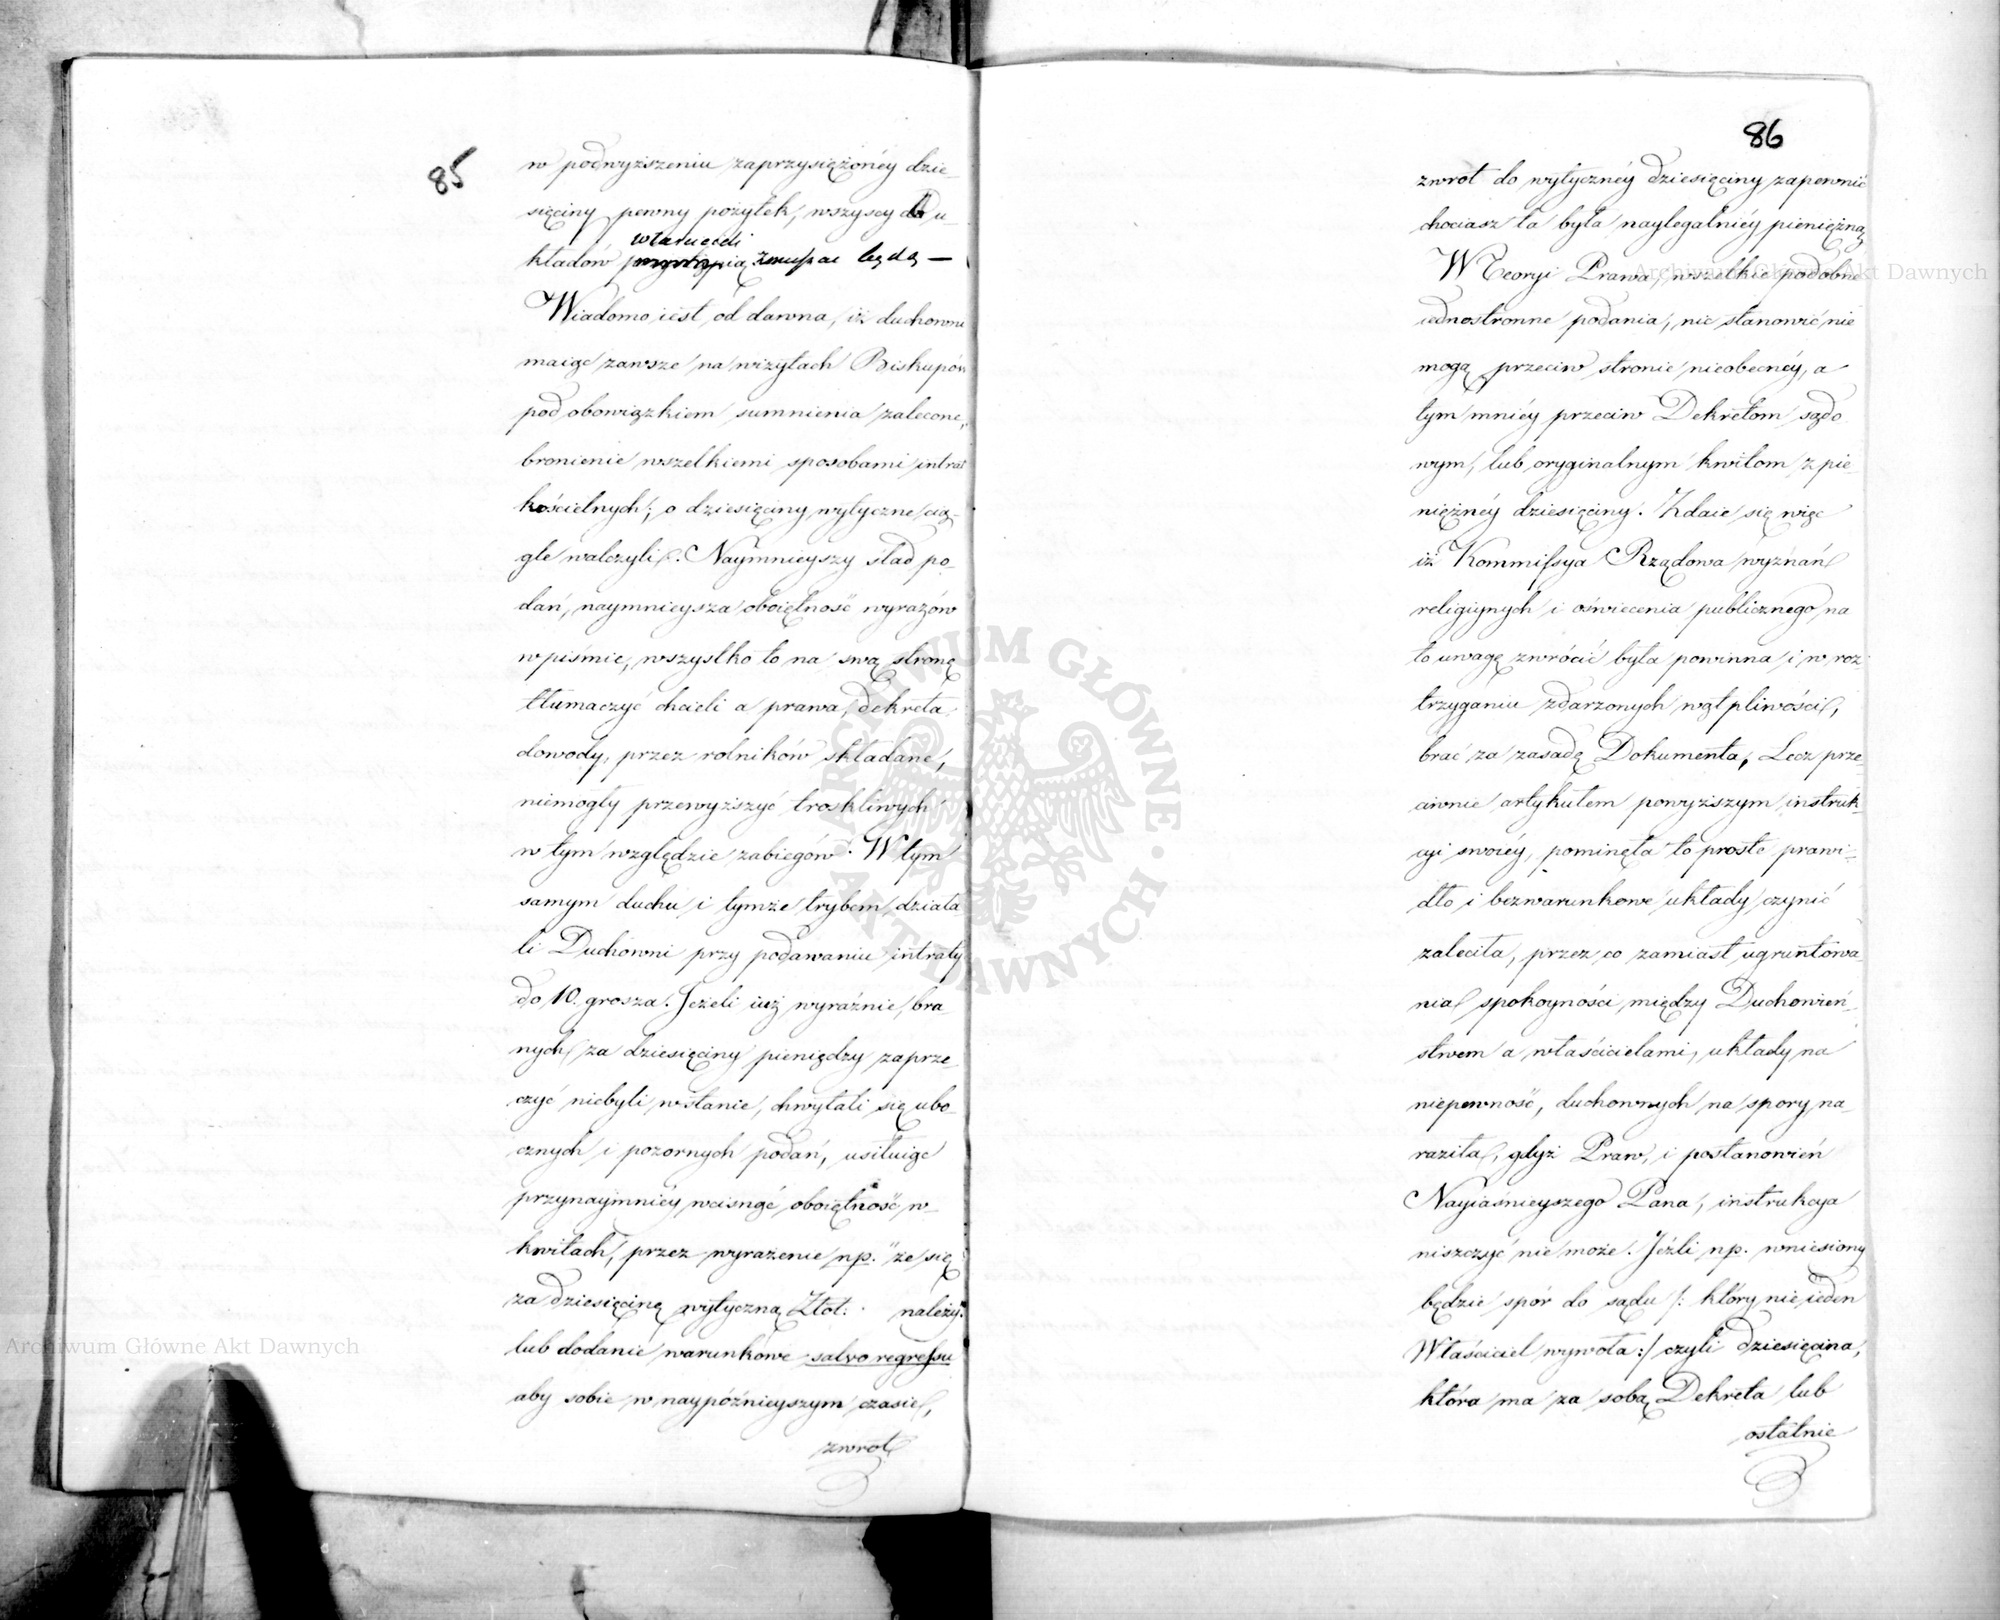 85
w podwyższeniu zaprzysiężonéy dzie-
sięciny pewny pożytek, wszyscy do u-
właściciele
kładów będą —
Wiadomo iest od dawna, iż duchowni
maiąc zawsze na wizytach Biskupów
pod obowiązkiem sumnienia zalecone,
bronienie wszelkiemi sposobami intrat
kościelnych; o dziesięciny wytyczne cią-
gle walczyli. Naymnieyszy slad po-
dań, naymnieysza oboiętność wyrazów
w piśmie, wszystko to na swą stronę
tłumaczyć chcieli a prawa, dekreta
dowody, przez rolników składane,
niemogły przewyższyć troskliwych
w tym względzie zabiegów. W tym
samym duchu i tymże trybem działa
li Duchowni przy podawaniu intraty
do 10. grosza. Jeżeli iuż wyraźnie bra-
nych za dziesięciny pieniędzy zaprze-
czyć niebyli wstanie, chwytali się ubo-
cznych i pozornych podań, usiłuiąc
przynaymniéy wcisnąć oboiętność w-
kwitach, przez wyrażenie np. "że się
za dziesięcinę wytyczną Złot: należy".
lub dodanie warunkowe salvo regressu
aby sobie w naypóźnieyszym czasie,
zwrot
86
zwrot do wytycznéy dziesięciny zapewnić
chociasz ta była naylegalniéy pieniężną
W Teoryi Prawa, wszelkie podobne
iednostronne podania, nic stanowić nie
mogą przeciw stronie nieobecnéy, a
tym mniéy przeciw Dekretom sądo
wym, lub oryginalnym kwitom z pie
niężnéy dziesięciny. Zdaie się więc
iż Kommissya Rządowa wyznań
religiynych i oświecenia publicznego na
to uwagę zwrócić była powinna i w roz
trzyganiu zdarzonych wątpliwości,
brać za zasadę Dokumenta, Lecz prze-
ciwnie artykułem powyższym instruk-
cyi swoiéy, pominęła to proste prawi-
dło i bezwarunkowe układy czynić
zaleciła, przez co zamiast ugruntowa-
nia spokoyności między Duchowień-
stwem a właścicielami, układy na
niepewność, duchownych na spory na-
raziła, gdyż Praw, i postanowień
Nayiaśnieyszego Pana, instrukcya
niszczyć nie może. Jeźli np. wniesiony
będzie spór do sądu /: który nie ieden
Właściciel wywoła:/ czyli dziesięcina,
która ma za sobą Dekreta lub
ostatnie
Archiwum Główne Akt Dawnych
Archiwum Główne Akt Dawnych
ARCHIWUM GŁÓWNE · AKT DAWNYCH ·